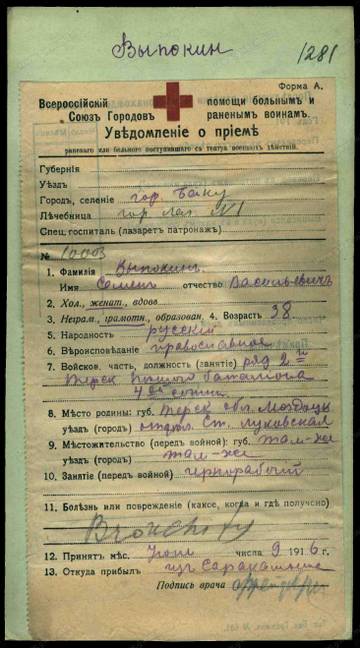 Выпокин
1281
Форма А.
Всероссійскій помощи больнымъ и
Союзъ Городовъ раненымъ воинамъ.
Увѣдомленіе о пріемѣ
раненаго или больного поступившаго съ театра военныхъ дѣйствій.
Губернія
Уѣздъ
Городъ, селеніе гор. Баку
Лѣчебница гор. Лаз. №1
Спец. госпиталь (лазаретъ патронажъ)
№ 10003
1. Фамилія Выпокинъ
Имя Семенъ отчество Васильевичъ
2. Хол., женат., вдовъ
3. Неграм., грамотн., образован. 4. Возрастъ 38
5. Народность русскій
6. Вѣроисповѣданіе православное
7. Войсков. часть, должность (занятіе) ряд. 2й
Терск. баталіона
4ой сотни
8. Мѣсто родины: губ. Терск. обл. Моздокск.
уѣздъ (городъ) ст. Луковская
9. Мѣстожительство (передъ войной): губ. там-же
уѣздъ (городъ) там-же
10. Занятіе (передъ войной) чернорабочій
11. Болѣзнь или поврежденіе (какое, когда и гдѣ получено)
Bronchitis
12. Принятъ мѣс. числа 9 1916 г.
13. Откуда прибылъ изъ Сарыкамыша
Подпись врача